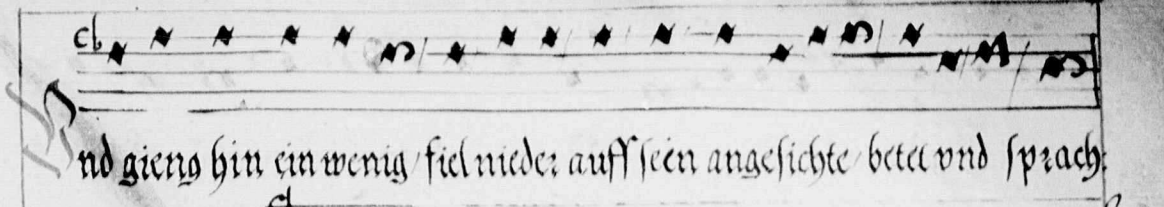 Vnd gieng hin ein wenig / fiel nieder auff seen angesichte / betet vnd sprach: